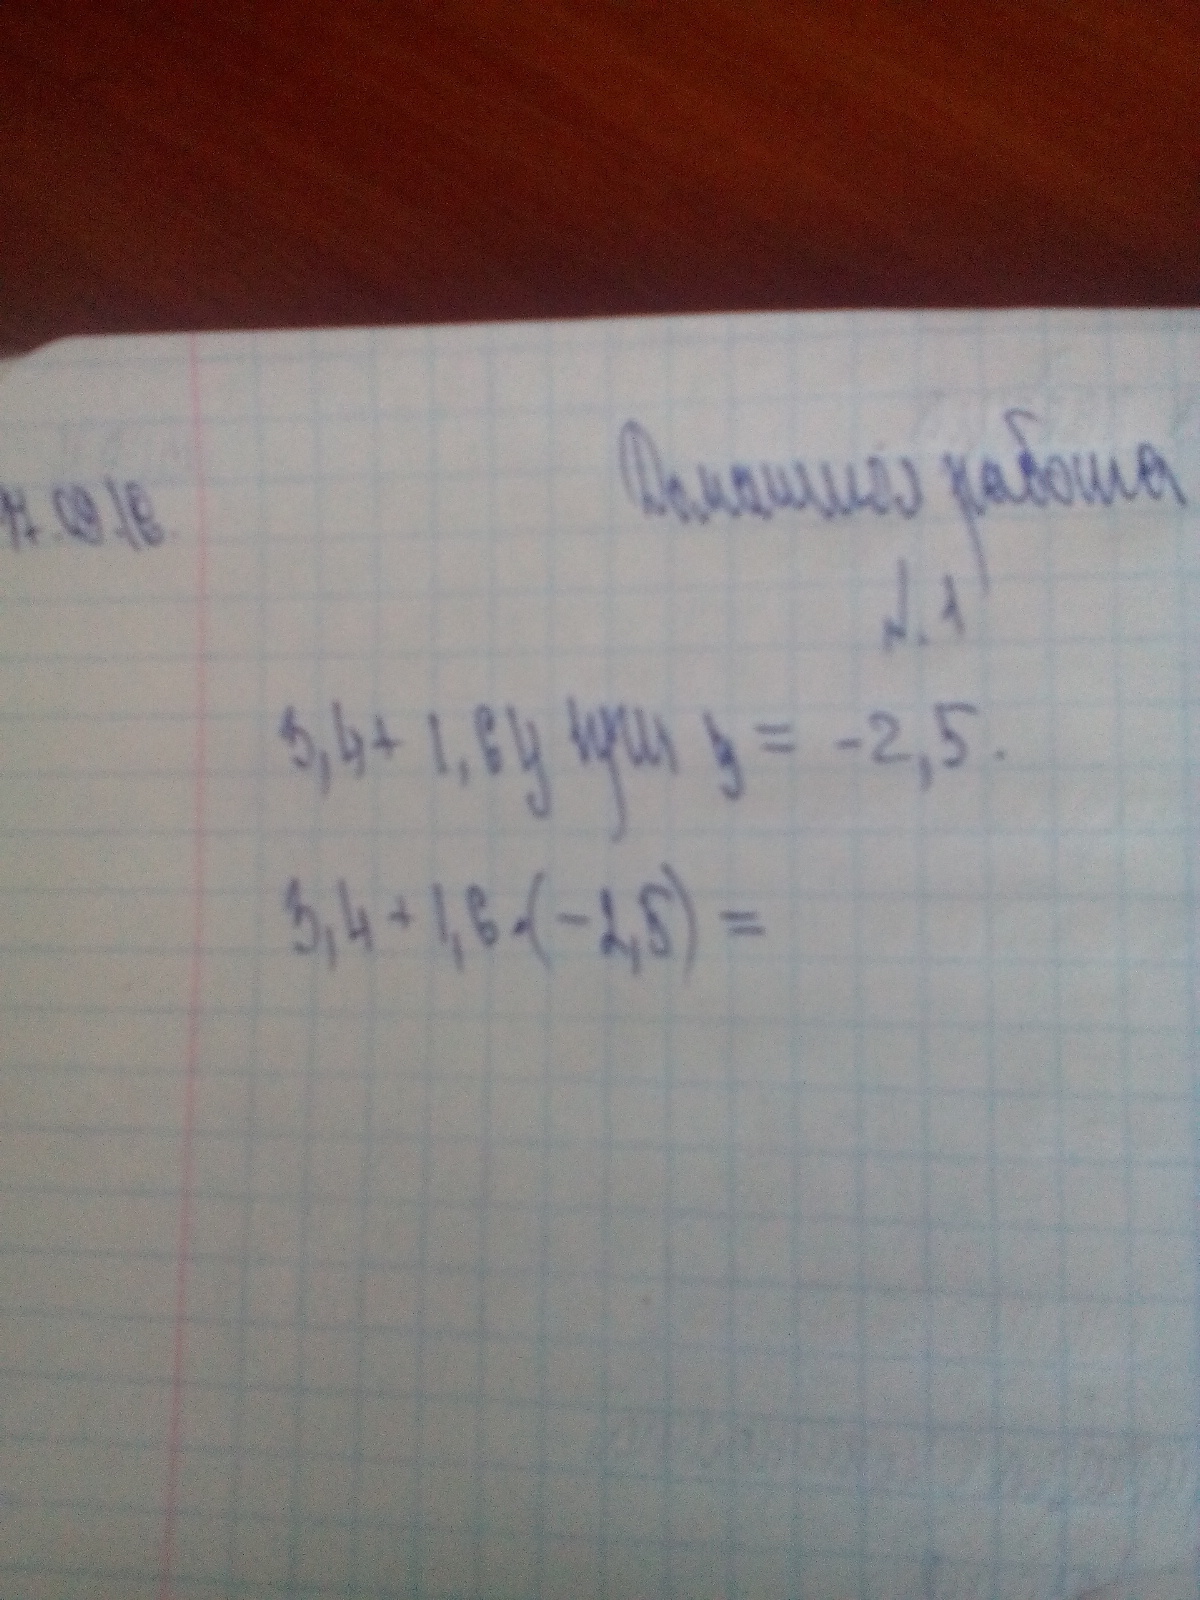 17.09.18.
Домашняя работа
№.1
3,4+ 1,6y при y = -2,5.
3,4 + 1,6·(-2,5) =